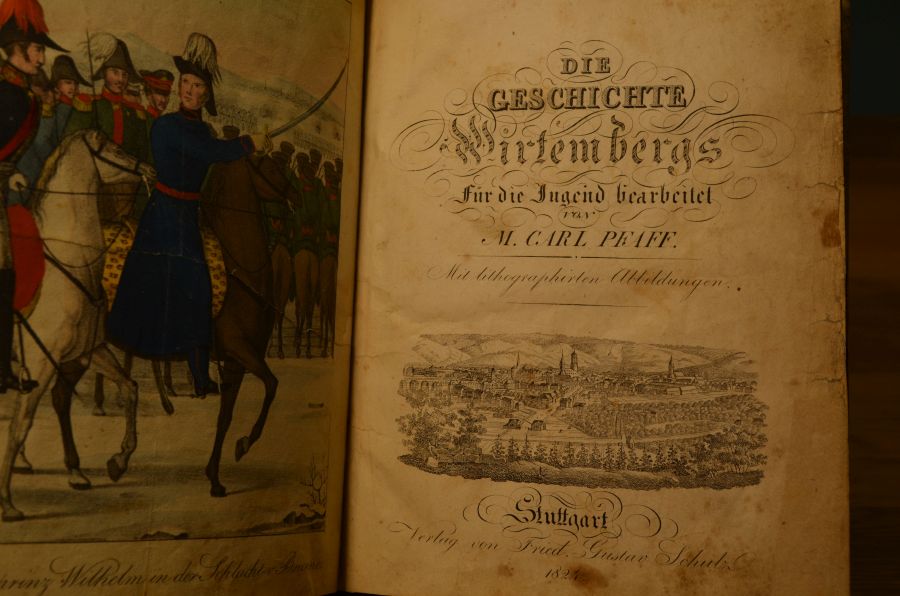 prinz Wilhelm in der Schlacht v. Brienne.
DIE
GESCHICHTE
Wirtembergs
Für die Jugend bearbeitet
von
M. CARL PFAFF.
Mit lithographirten Abbildungen.
Stuttgart
Verlag von Fried. Gustav Schulz.